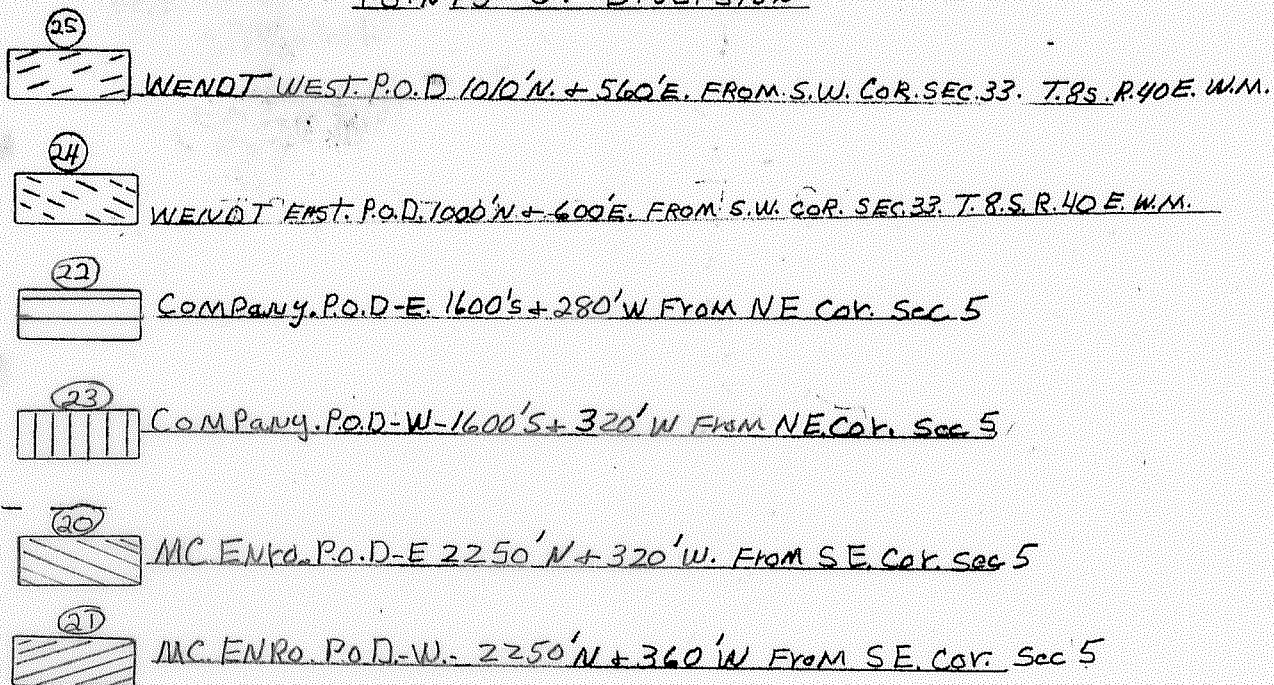 POINTS OF DIVERSION
25
WENDT WEST. P.O.D 1010'N. + 560'E. FROM S.W. COR. SEC. 33. T.8S. R.40E. W.M.
24
WENDT EAST. P.O.D. 1000'N + 600'E. FROM S.W. COR. SEC. 33. T.8.S. R.40 E. W.M.
22
Company. P.O.D-E. 1600's + 280'W From NE Cor. Sec 5
23
Company. P.O.D-W-1600'S + 320'W From NE. Cor. Sec 5
20
MC. ENro. P.O.D-E 2250'N + 320'W. From S E. Cor. Sec 5
21
MC. ENRo. P.o.D.-W.- 2250'N + 360'W From S E. Cor. Sec 5